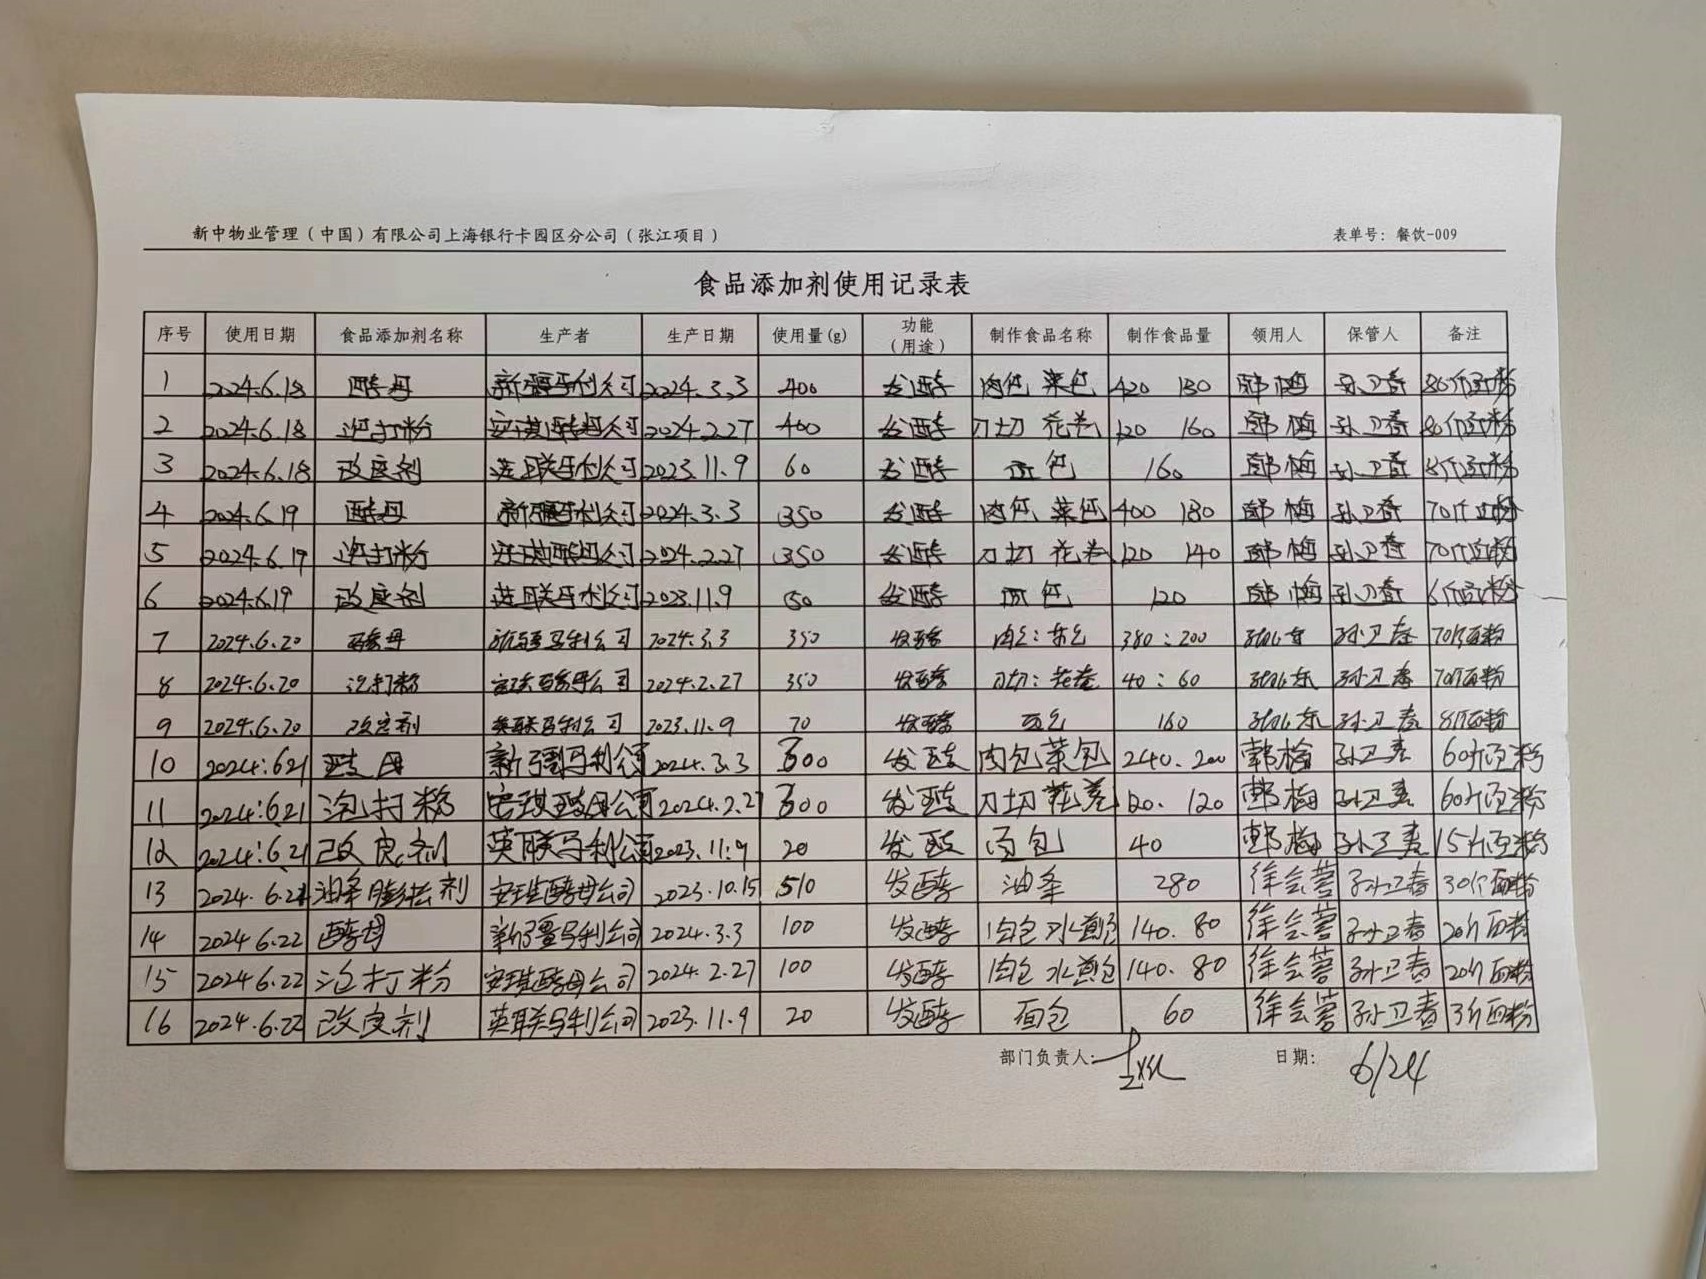 新中物业管理（中国）有限公司上海银行卡园区分公司（张江项目） 表单号：餐饮-009
食品添加剂使用记录表
序号 使用日期 食品添加剂名称 生产者 生产日期 使用量(g) 功能（用途） 制作食品名称 制作食品量 领用人 保管人 备注
1 2024.6.18 酵母 新疆马利公司 2024.3.3 400 发酵 肉包 菜包 420 180 韩梅 孙卫春 80斤面粉
2 2024.6.18 泡打粉 安琪酵母公司 2024.2.27 400 发酵 刀切 花卷 120 160 韩梅 孙卫春 80斤面粉
3 2024.6.18 改良剂 英联马利公司 2023.11.9 60 发酵 面包 160 韩梅 孙卫春 8斤面粉
4 2024.6.19 酵母 新疆马利公司 2024.3.3 350 发酵 肉包 菜包 400 180 韩梅 孙卫春 70斤面粉
5 2024.6.19 泡打粉 安琪酵母公司 2024.2.27 350 发酵 刀切 花卷 120 140 韩梅 孙卫春 70斤面粉
6 2024.6.19 改良剂 英联马利公司 2023.11.9 50 发酵 面包 120 韩梅 孙卫春 6斤面粉
7 2024.6.20 酵母 新疆马利公司 2024.3.3 350 发酵 肉包：菜包 380：200 孙卫春 70斤面粉
8 2024.6.20 泡打粉 安琪酵母公司 2024.2.27 350 发酵 刀切：花卷 40：60 孙卫春 70斤面粉
9 2024.6.20 改良剂 英联马利公司 2023.11.9 70 发酵 面包 160 孙卫春 8斤面粉
10 2024.6.21 酵母 新疆马利公司 2024.3.3 300 发酵 肉包菜包 240.200 韩梅 孙卫春 60斤面粉
11 2024.6.21 泡打粉 安琪酵母公司 2024.2.27 300 发酵 刀切花卷 120.120 韩梅 孙卫春 60斤面粉
12 2024.6.21 改良剂 英联马利公司 2023.11.9 20 发酵 面包 40 韩梅 孙卫春 15斤面粉
13 2024.6.22 油条膨松剂 安琪酵母公司 2023.10.15 510 发酵 油条 280 徐会营 孙卫春 30斤面粉
14 2024.6.22 酵母 新疆马利公司 2024.3.3 100 发酵 肉包 水煎包 140.80 徐会营 孙卫春 20斤面粉
15 2024.6.22 泡打粉 安琪酵母公司 2024.2.27 100 发酵 肉包 水煎包 140.80 徐会营 孙卫春 20斤面粉
16 2024.6.22 改良剂 英联马利公司 2023.11.9 20 发酵 面包 60 徐会营 孙卫春 3斤面粉
部门负责人： 日期： 6/24